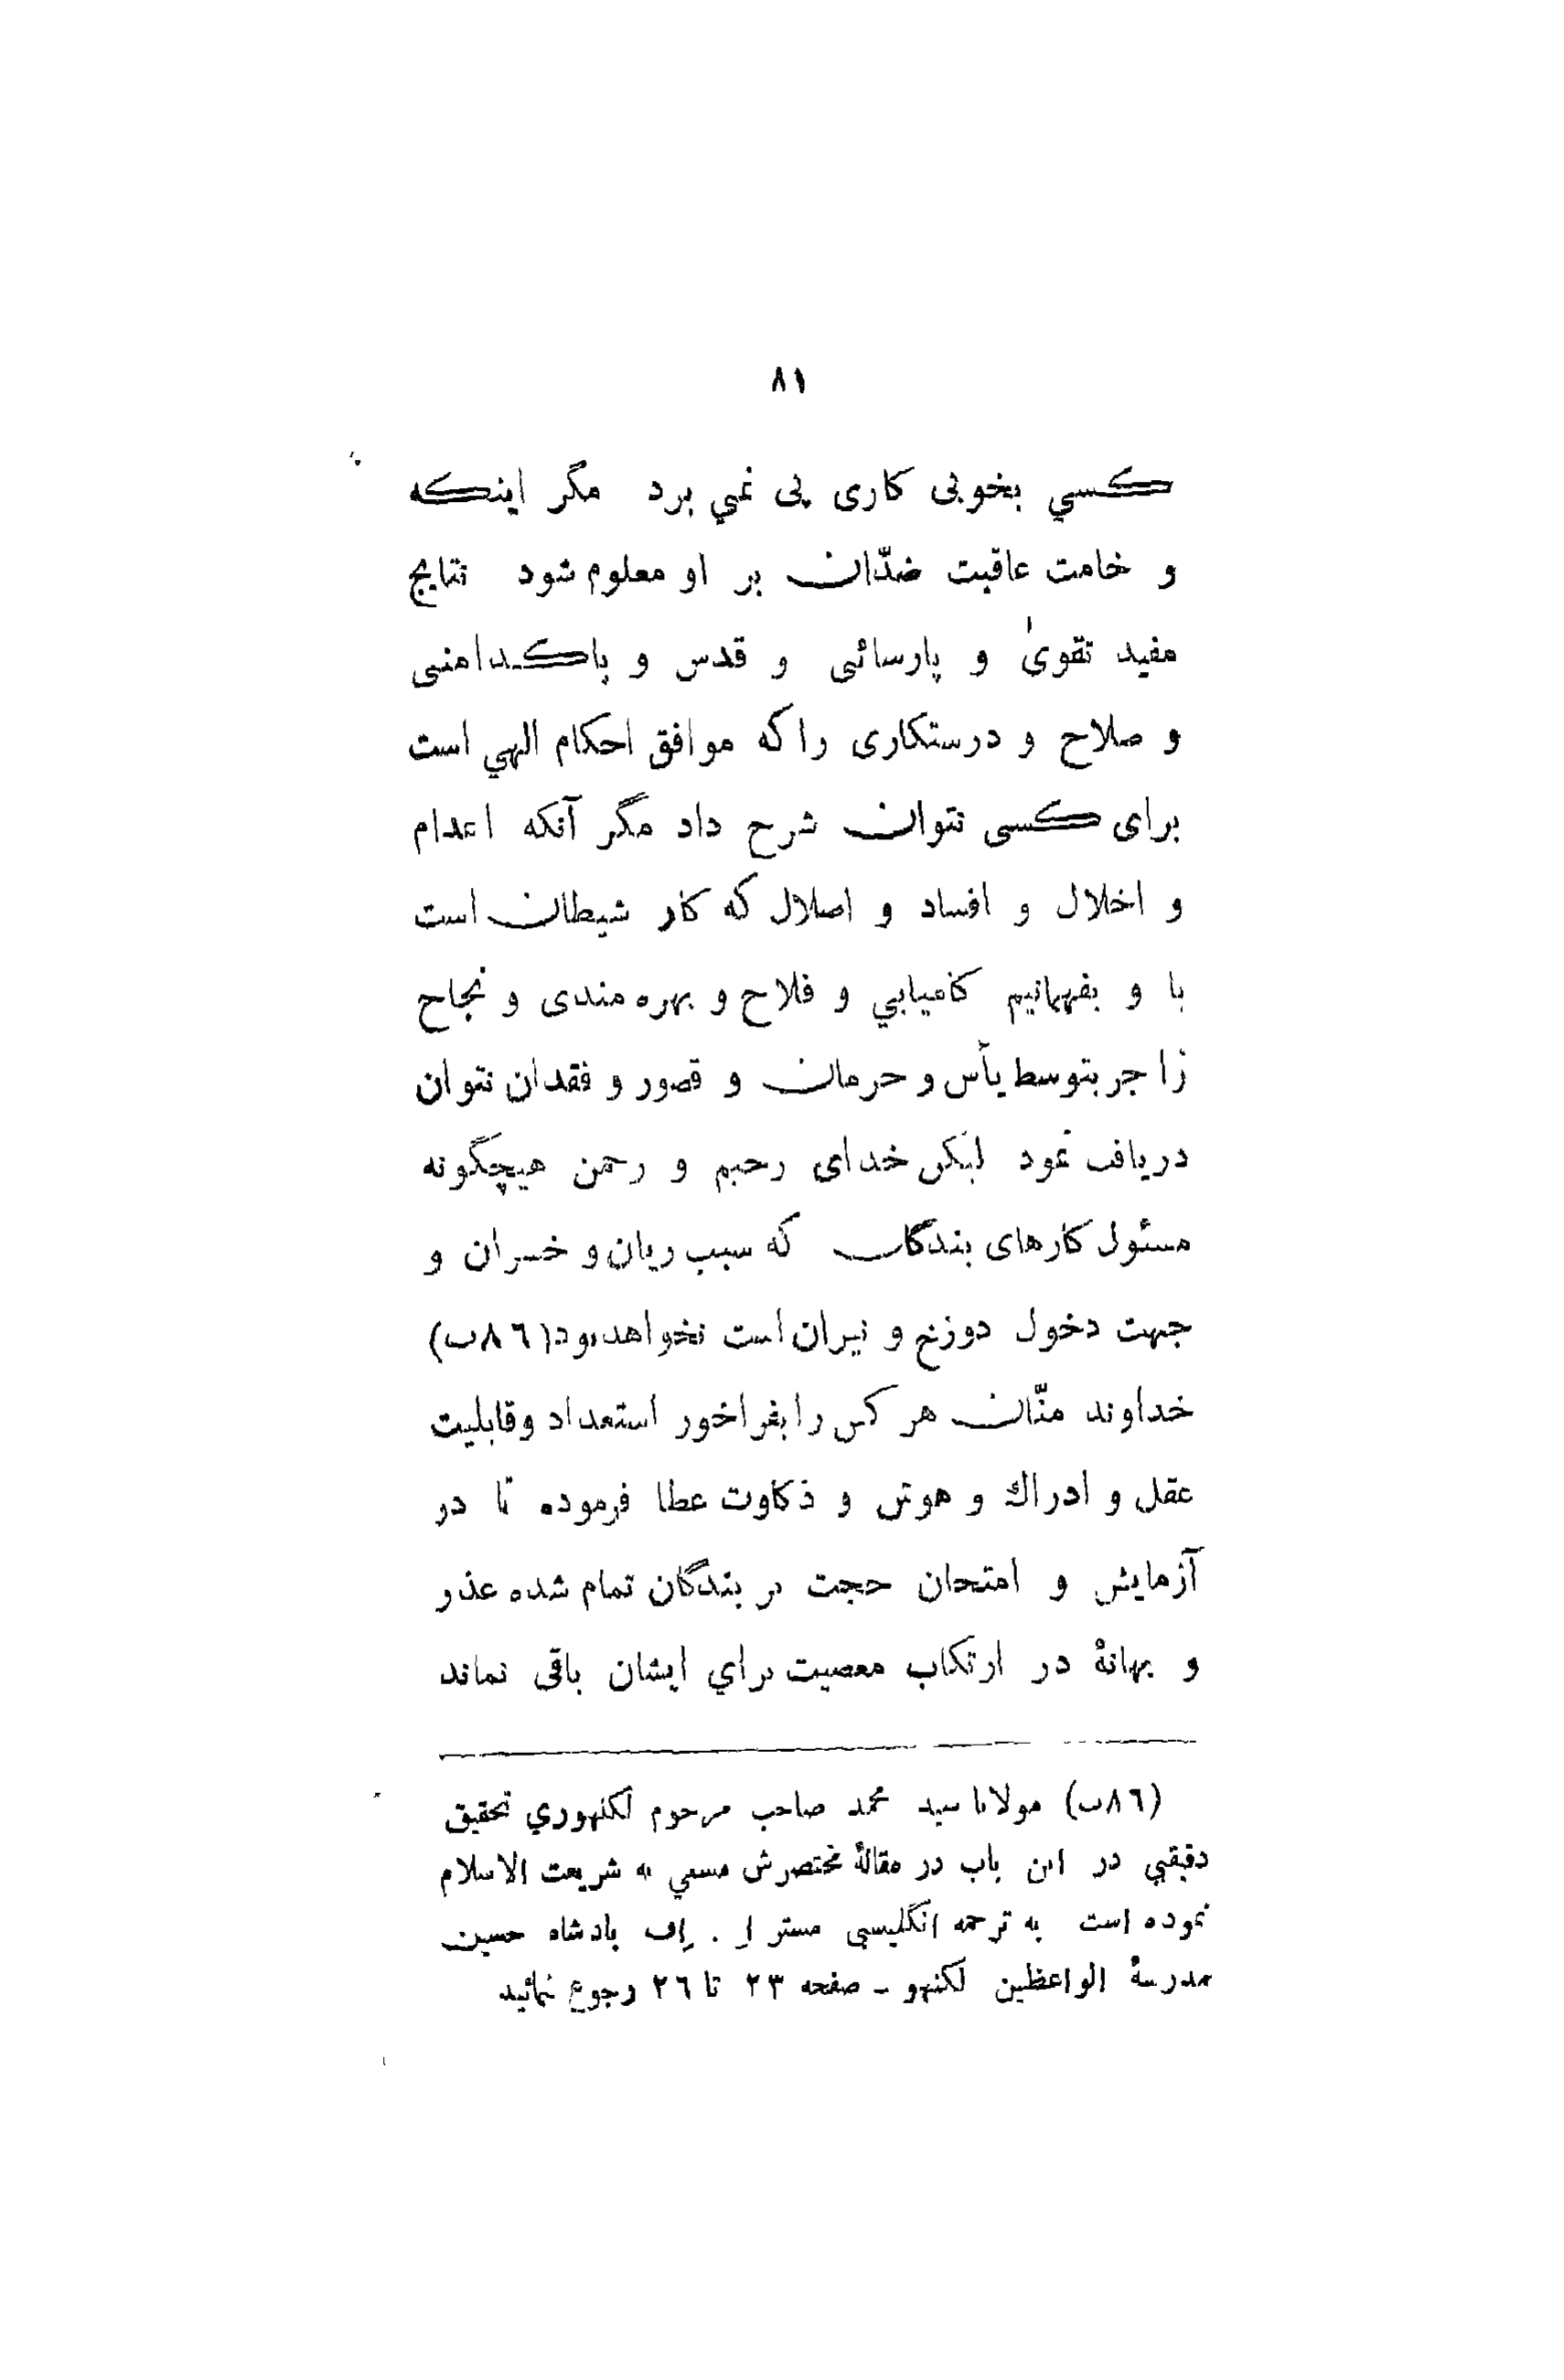 ۸۱
کسي بخوبی کاری پی نمي برد مگر اینکه
و خامت عاقبت ضدّان بر او معلوم شود نتایج
مفید تقویٰ و پارسائی و قدس و پاکدامنی
و صلاح و درستکاری را که موافق احکام الهي است
برای کسی نتوان شرح داد مگر آنکه اعدام
و اخلال و افساد و اضلال که کار شیطان است
با و بفهمانیم کامیابي و فلاح و بهره مندی و نجاح
را جر بتوسط یأس و حرمان و قصور و فقدان نتوان
دریافت نمود لیکن خدای رحیم و رحمن هیچگونه
مسئول کارهای بندگان که سبب زیان و خسران و
جهت دخول دوزخ و نیران است نخواهد بود (٨٦ب)
خداوند منّان هر کس را بفراخور استعداد و قابلیت
عقل و ادراك و هوش و ذکاوت عطا فرموده تا در
آزمایش و امتحان حجت بر بندگان تمام شده عذر
و بهانهٔ در ارتکاب معصیت براي ایشان باقی نماند
(٨٦ب) مولانا سید محمد صاحب مرحوم لکنهوري تحقیق
دقیقي در این باب در مقالهٔ مختصرش مسمي به شریعت الاسلام
نموده است به ترجمه انگلیسی مستر ا. اف بادشاه حسین
مدرسهٔ الواعظین لکنهو ـ صفحه ۲۳ تا ۲٦ رجوع نمائید